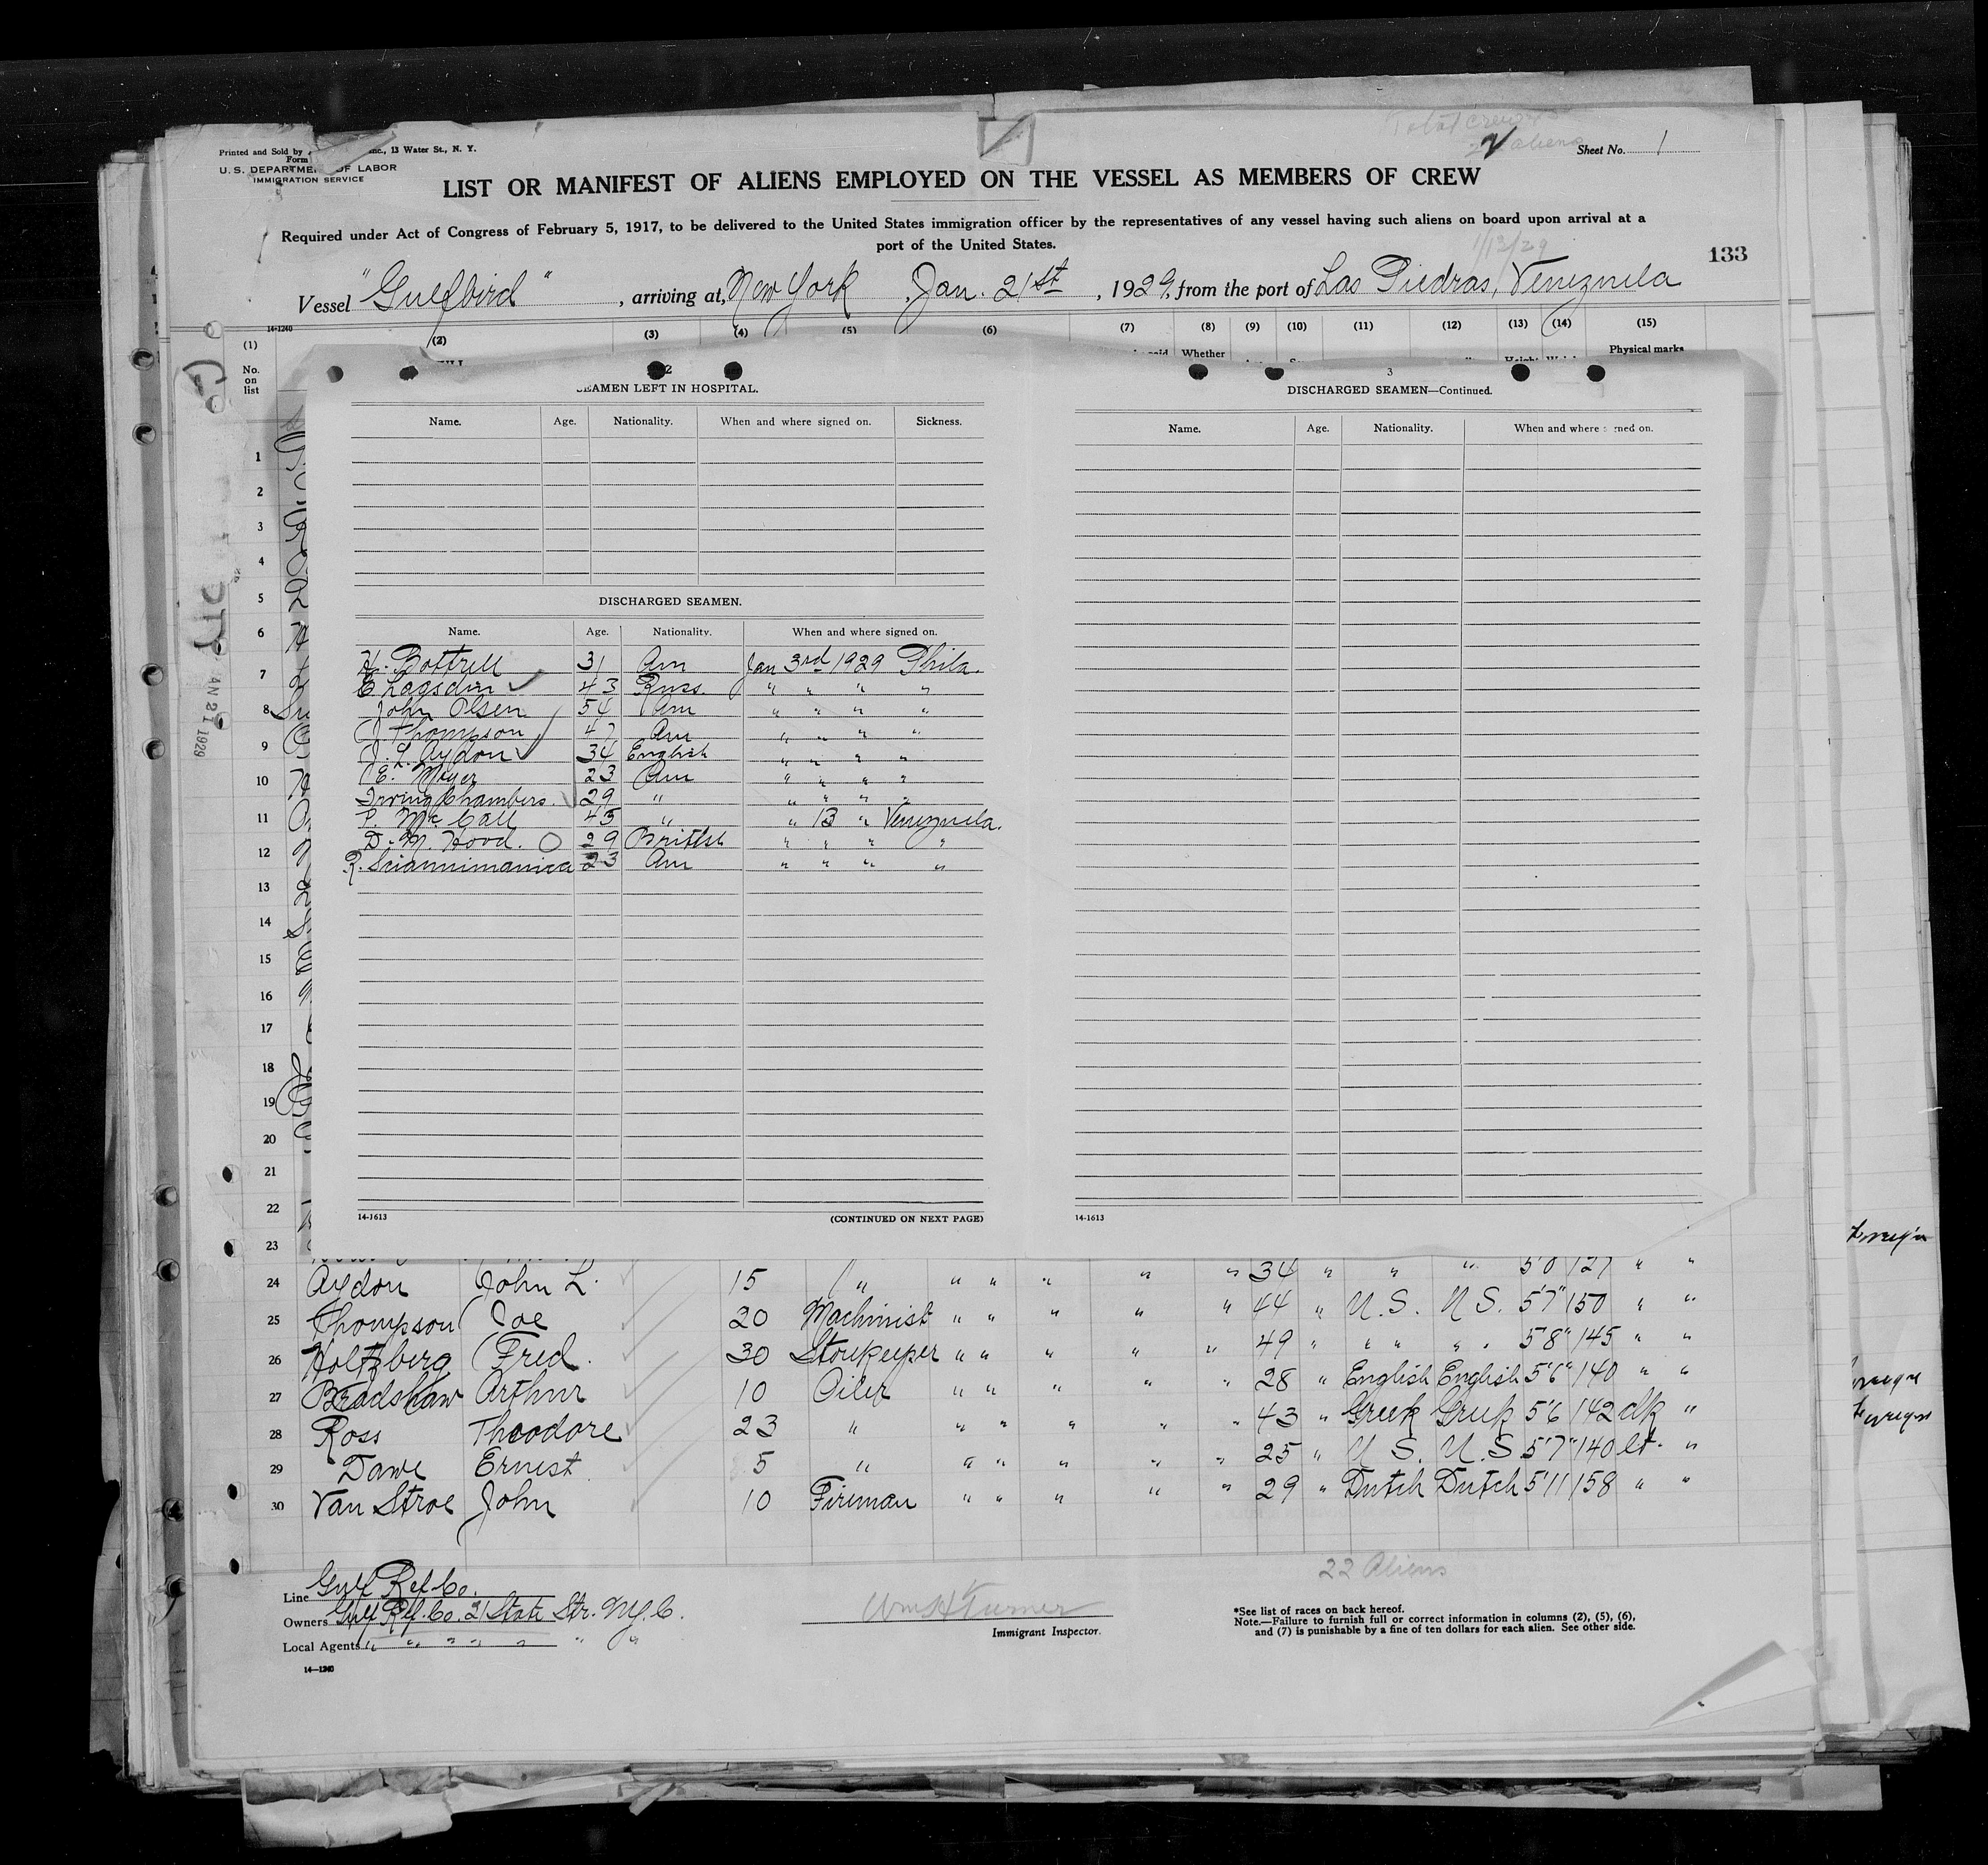 Total crew
aliens
Printed and Sold by Inc., 13 Water St., N. Y.
Form
U. S. DEPARTMENT OF LABOR
IMMIGRATION SERVICE
Sheet No. 1
LIST OR MANIFEST OF ALIENS EMPLOYED ON THE VESSEL AS MEMBERS OF CREW
Required under Act of Congress of February 5, 1917, to be delivered to the United States immigration officer by the representatives of any vessel having such aliens on board upon arrival at a
port of the United States.
1/13/29
133
Vessel "Gulfbird", arriving at New York, Jan. 21st, 1929, from the port of Las Piedras, Venezuela
14-1240
(1) (2) (3) (4) (5) (6) (7) (8) (9) (10) (11) (12) (13) (14) (15)
No. on list
Whether
Physical marks
2
SEAMEN LEFT IN HOSPITAL.
Name. Age. Nationality. When and where signed on. Sickness.
DISCHARGED SEAMEN.
Name. Age. Nationality. When and where signed on.
H. Bottrell 31 Am Jan 3rd 1929 Phila.
E Lagsdin 43 Russ. " " " "
John Olsen 54 Am " " " "
J Thompson 47 Am " " " "
J. L. Aydon 34 English " " " "
E. Meyer 23 Am " " " "
Irving Chambers. 29 " " " " "
P. McCall 45 " " 13 " Venezuela.
D. M. Hood. 29 British " " " "
R. 23 Am " " " "
14-1613
(CONTINUED ON NEXT PAGE)
3
DISCHARGED SEAMEN—Continued.
Name. Age. Nationality. When and where signed on.
14-1613
1
2
3
4
5
6
7
8
9
10
11
12
13
14
15
16
17
18
19
20
21
22
23
JAN 21 1929
24 Aydon John L. 15 " " " " " " 34 " " " 5'0 127 " "
25 Thompson Joe 20 Machinist " " " " " 44 " U.S. U S. 5'7" 150 " "
26 Holtzberg Fred. 30 Storekeeper " " " " " 49 " " " " " 5'8" 145 " "
27 Bradshaw Arthur 10 Oiler " " " " " 28 " English English 5'6" 140 " "
28 Ross Theodore 23 " " " " " " 43 " Greek Greek 5'6 142 dk "
29 Dawe Ernest 5 " " " " " " 25 " U S. U. S 5'7" 140 lt. "
30 Van Stroe John 10 Fireman " " " " " 29 " Dutch Dutch 5'11 158 " "
Foreign
Foreign
22 Aliens
Line Gulf Ref. Co.
Owners Gulf Ref. Co. 21 State Str. N.Y.C.
Local Agents " " " " " " "
Wm H Turner
Immigrant Inspector.
*See list of races on back hereof.
Note.—Failure to furnish full or correct information in columns (2), (5), (6),
and (7) is punishable by a fine of ten dollars for each alien. See other side.
14—1240